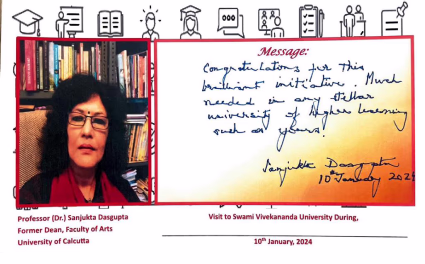 Message:
Congratulations for this
brilliant initiative. Much
needed in any stellar
university of higher learning
such as yours!
Sanjukta Dasgupta
10th January 2024
Professor (Dr.) Sanjukta Dasgupta
Former Dean, Faculty of Arts
University of Calcutta
Visit to Swami Vivekananda University During,
10th January, 2024